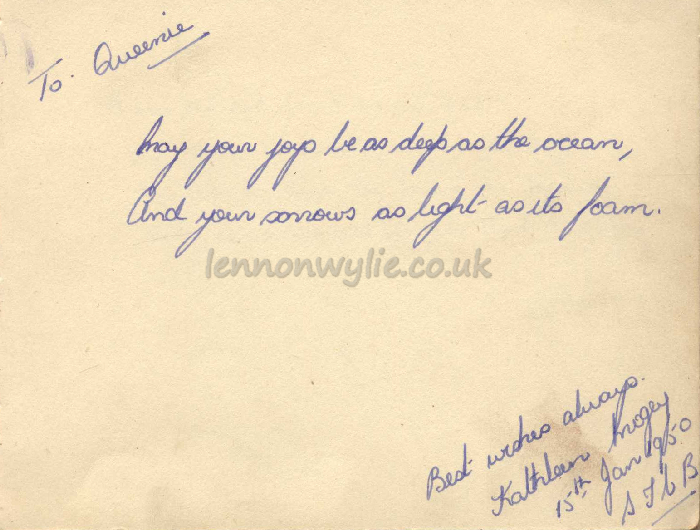 To. Queenie
May your joys be as deep as the ocean,
And your sorrows as light as its foam.
lennonwylie.co.uk
Best wishes always.
Kathleen Mogey
15th Jan 1950